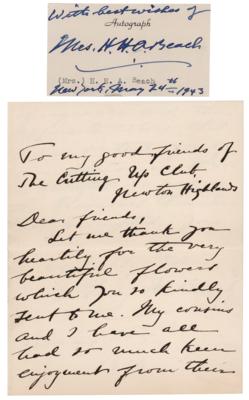 With best wishes of
Autograph
Mrs. H. H. A. Beach
(Mrs.) H. H. A. Beach
New York, May 24th 1943
To my good friends of
The Cutting Up Club,
Newton Highlands
Dear friends,
Let me thank you
heartily for the very
beautiful flowers
which you so kindly
sent to me. My cousins
and I have all
had so much keen
enjoyment from them